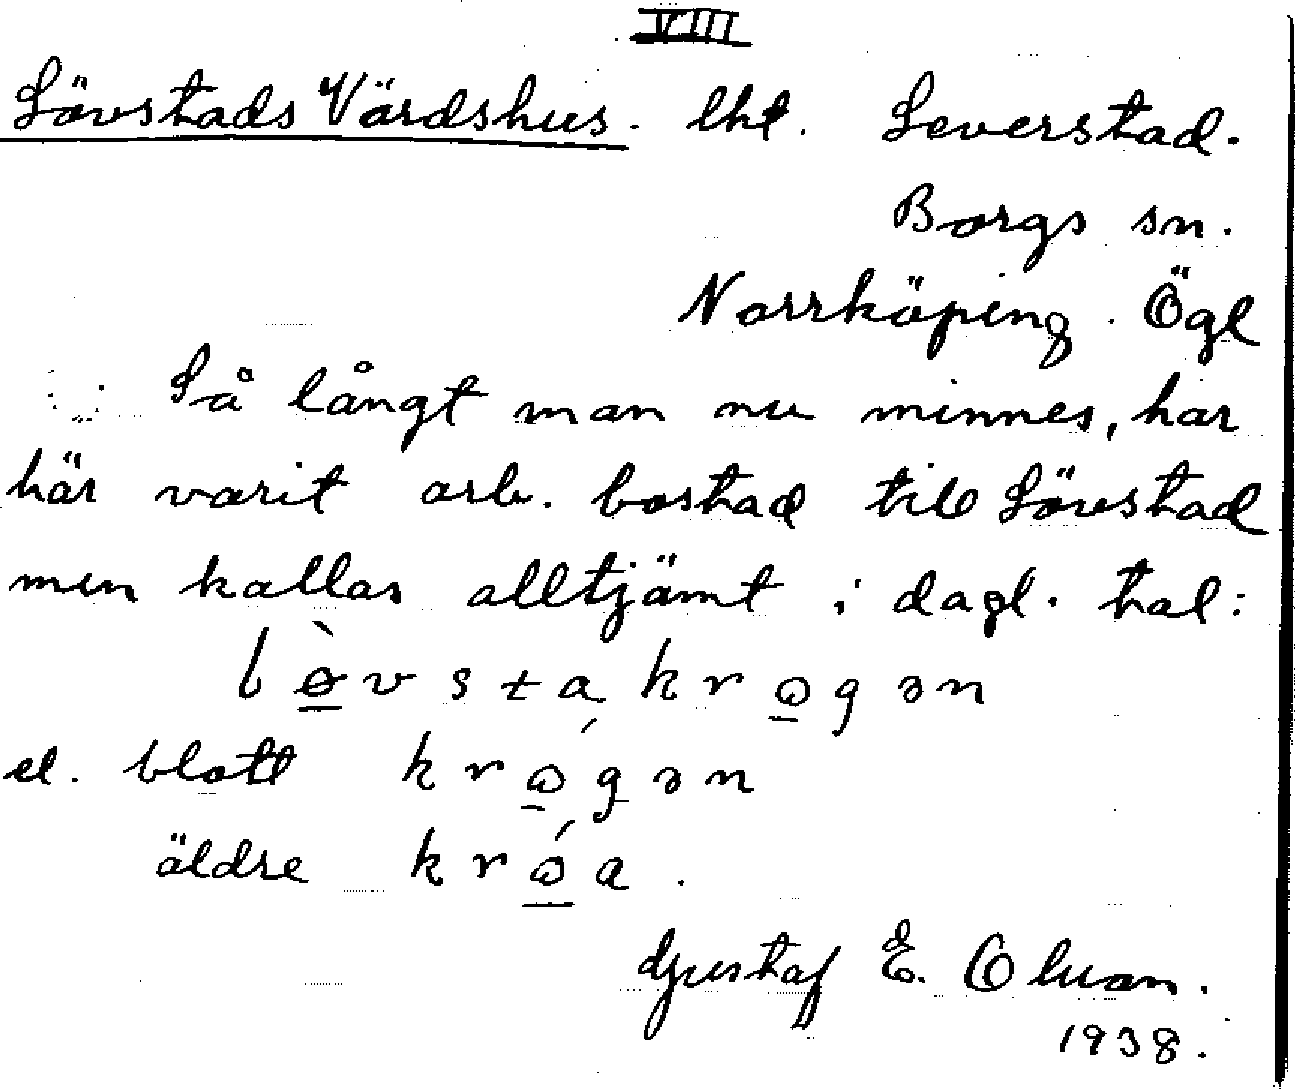 VIII
Lövstads Värdshus. lht. Leverstad.
Borgs sn.
Norrköping. Ögl
Så långt man nu minnes, har
här varit arb. bostad till Lövstad
men kallas alltjämt i dagl. tal:
lɵ̠̀vstakrɷ̠gən
el. blott krɷ̠́gən
äldre krɷ̠́a.
Gustaf E. Olson.
1938.